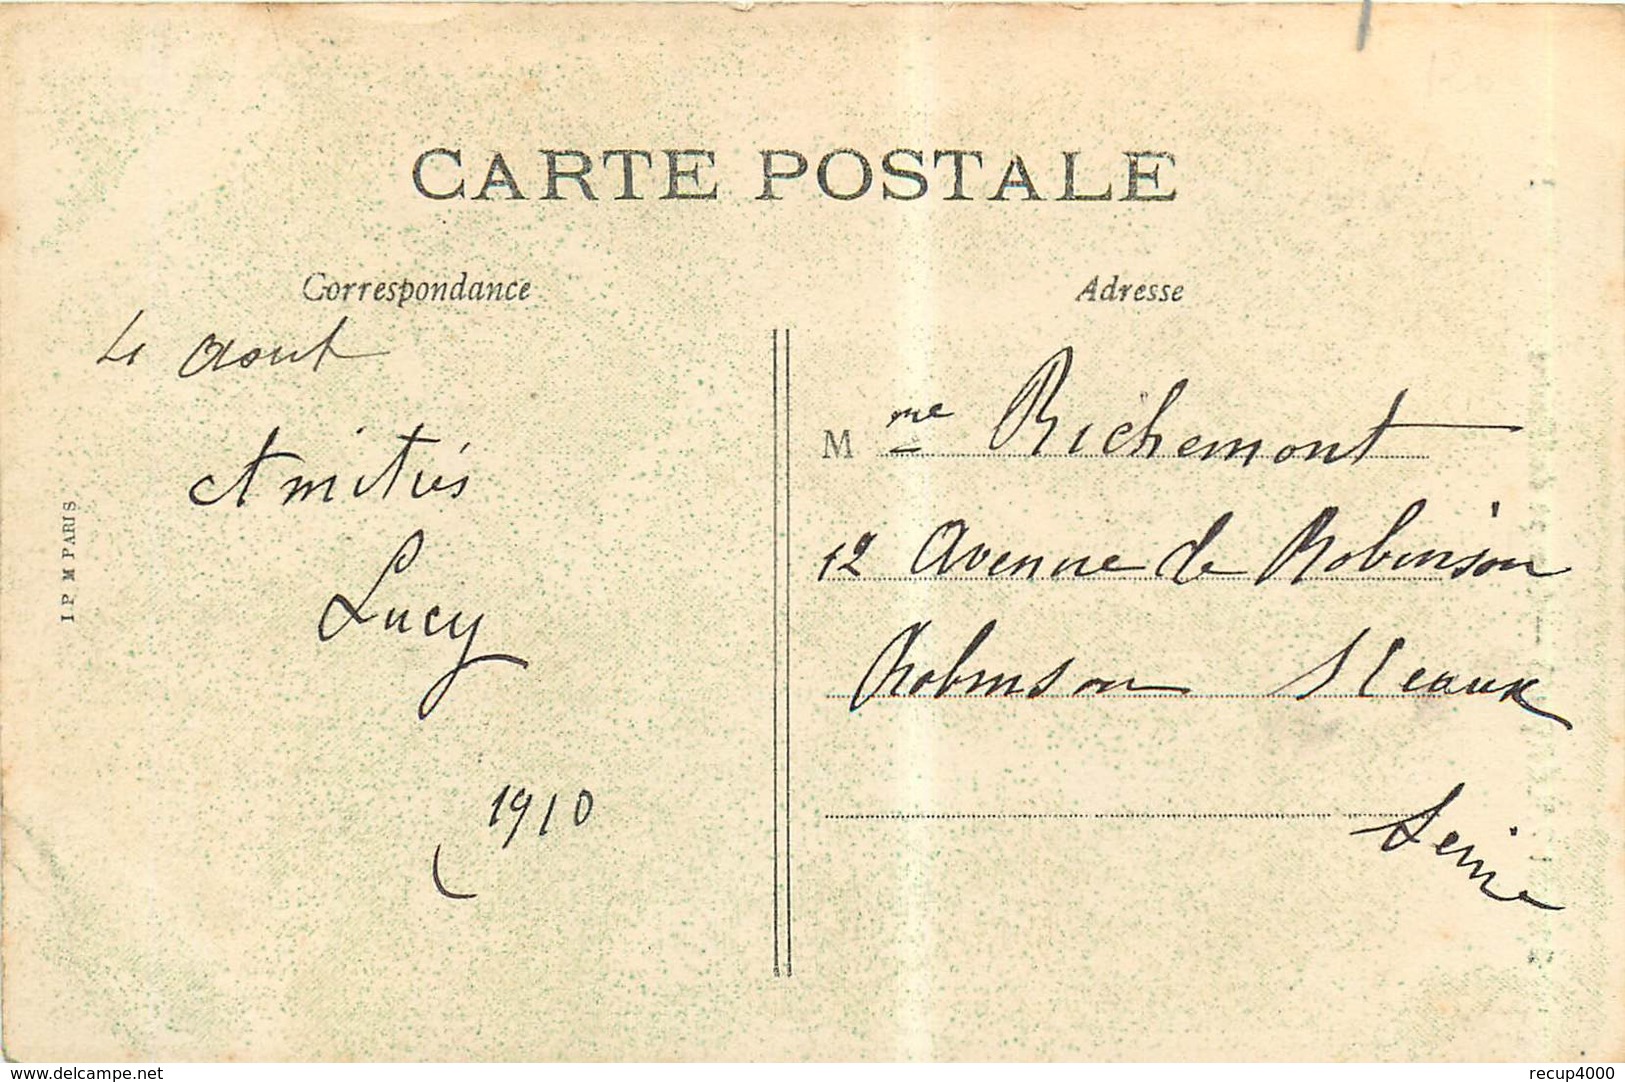 CARTE POSTALE
Correspondance
Adresse
4 Aout
Amitiés
Lucy
1910
I P M PARIS
Mme Richemont
12 Avenue de Robinson
Robinson Sceaux
Seine
delcampe.net
recup4000